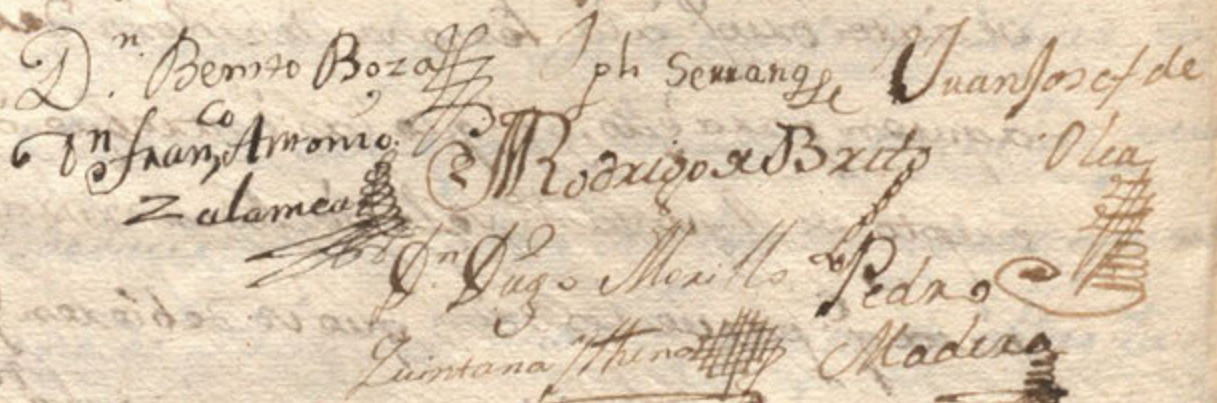 Dn. Benito Boza
Jph Serrano
Juan Josef de
Olea
Dn Franco Antonio
Zalamea
Rodrigo de Brito
Dn. Diego Morillo
Quintana
Pedro
Madera